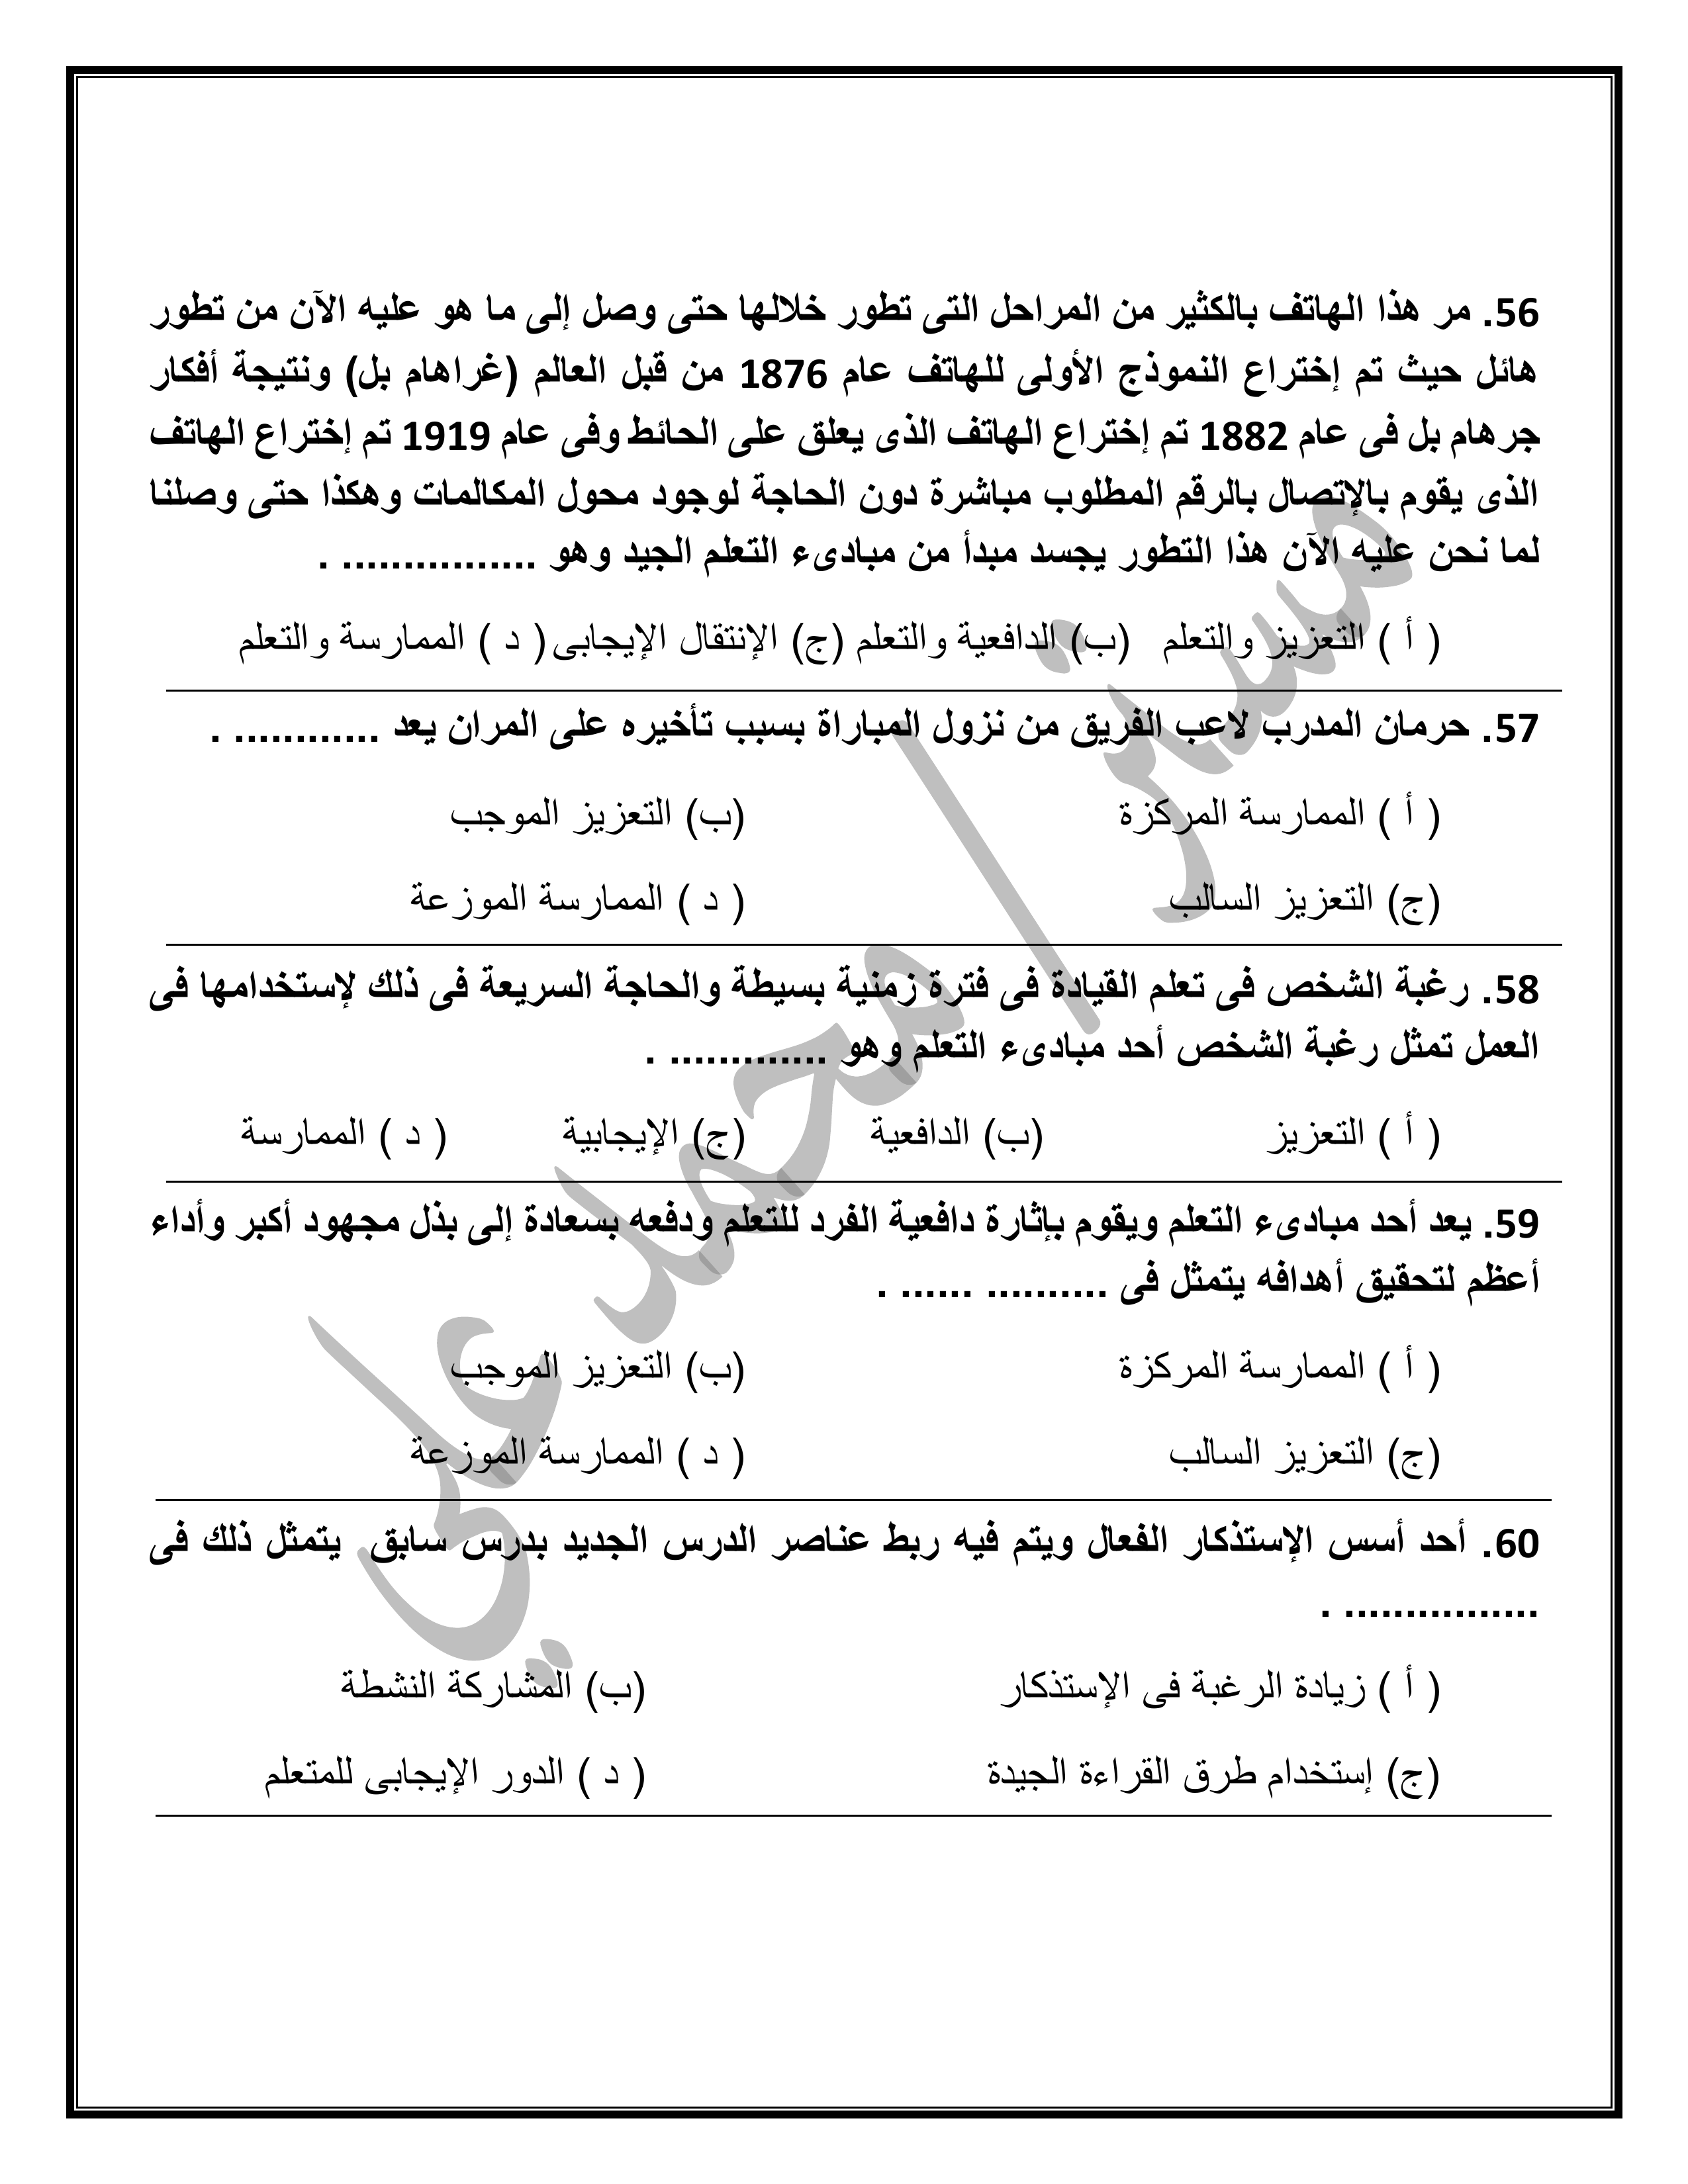 56. مر هذا الهاتف بالكثير من المراحل التى تطور خلالها حتى وصل إلى ما هو عليه الآن من تطور
هائل حيث تم إختراع النموذج الأولى للهاتف عام 1876 من قبل العالم (غراهام بل) ونتيجة أفكار
جرهام بل فى عام 1882 تم إختراع الهاتف الذى يعلق على الحائط وفى عام 1919 تم إختراع الهاتف
الذى يقوم بالإتصال بالرقم المطلوب مباشرة دون الحاجة لوجود محول المكالمات وهكذا حتى وصلنا
لما نحن عليه الآن هذا التطور يجسد مبدأ من مبادىء التعلم الجيد وهو ................ .
( أ ) التعزيز والتعلم (ب) الدافعية والتعلم (ج) الإنتقال الإيجابى ( د ) الممارسة والتعلم
57. حرمان المدرب لاعب الفريق من نزول المباراة بسبب تأخيره على المران يعد ............ .
( أ ) الممارسة المركزة (ب) التعزيز الموجب
(ج) التعزيز السالب ( د ) الممارسة الموزعة
58. رغبة الشخص فى تعلم القيادة فى فترة زمنية بسيطة والحاجة السريعة فى ذلك لإستخدامها فى
العمل تمثل رغبة الشخص أحد مبادىء التعلم وهو ............. .
( أ ) التعزيز (ب) الدافعية (ج) الإيجابية ( د ) الممارسة
59. يعد أحد مبادىء التعلم ويقوم بإثارة دافعية الفرد للتعلم ودفعه بسعادة إلى بذل مجهود أكبر وأداء
أعظم لتحقيق أهدافه يتمثل فى .......... ...... .
( أ ) الممارسة المركزة (ب) التعزيز الموجب
(ج) التعزيز السالب ( د ) الممارسة الموزعة
60. أحد أسس الإستذكار الفعال ويتم فيه ربط عناصر الدرس الجديد بدرس سابق يتمثل ذلك فى
................ .
( أ ) زيادة الرغبة فى الإستذكار (ب) المشاركة النشطة
(ج) إستخدام طرق القراءة الجيدة ( د ) الدور الإيجابى للمتعلم
مستر / محمد علي